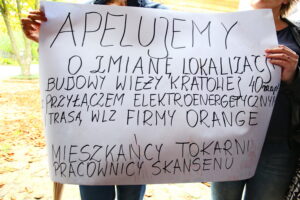 APELUJEMY
O ZMIANĘ LOKALIZACJ
BUDOWY WIEŻY KRATOWEJ 40
PRZYŁĄCZEM ELEKTROENERGETYCZNYM
TRASĄ WLZ FIRMY ORANGE
MIESZKAŃCY TOKARNI
PRACOWNICY SKANSENU